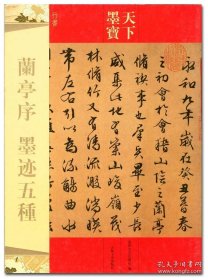 天下
墨寶
行書
蘭亭序 墨迹五種
永和九年歲在癸丑暮春
之初會于會稽山陰之蘭亭
脩稧事也羣賢畢至少長
咸集此地有崇山峻領茂
林脩竹又有清流激湍暎
帶左右引以為流觴曲水
孔夫子旧书网